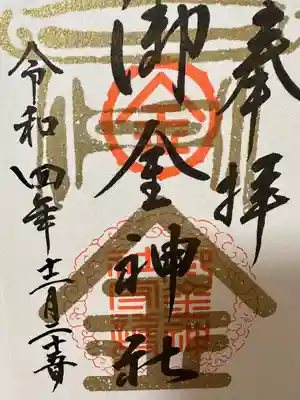 奉拝
御金神社
令和四年十二月二十
金